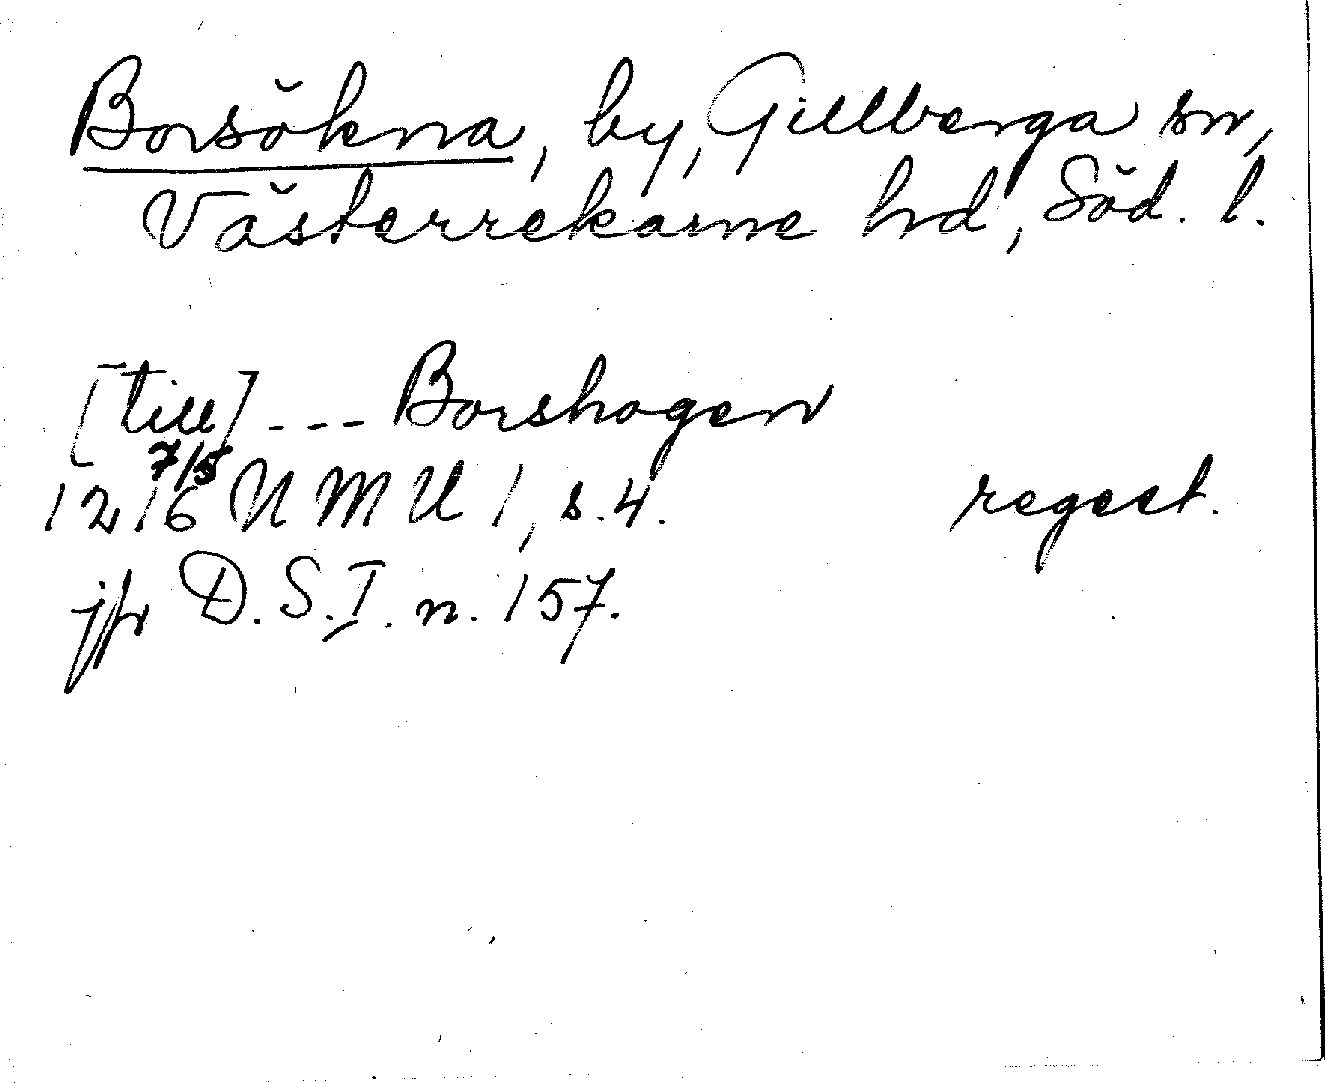 Borsökna, by, Gillberga sn,
Västerrekarne hd, Söd. l.
[till] --- Borshogen
1216 7/5 N M U 1, s. 4. regest.
jfr D. S. I. n. 157.